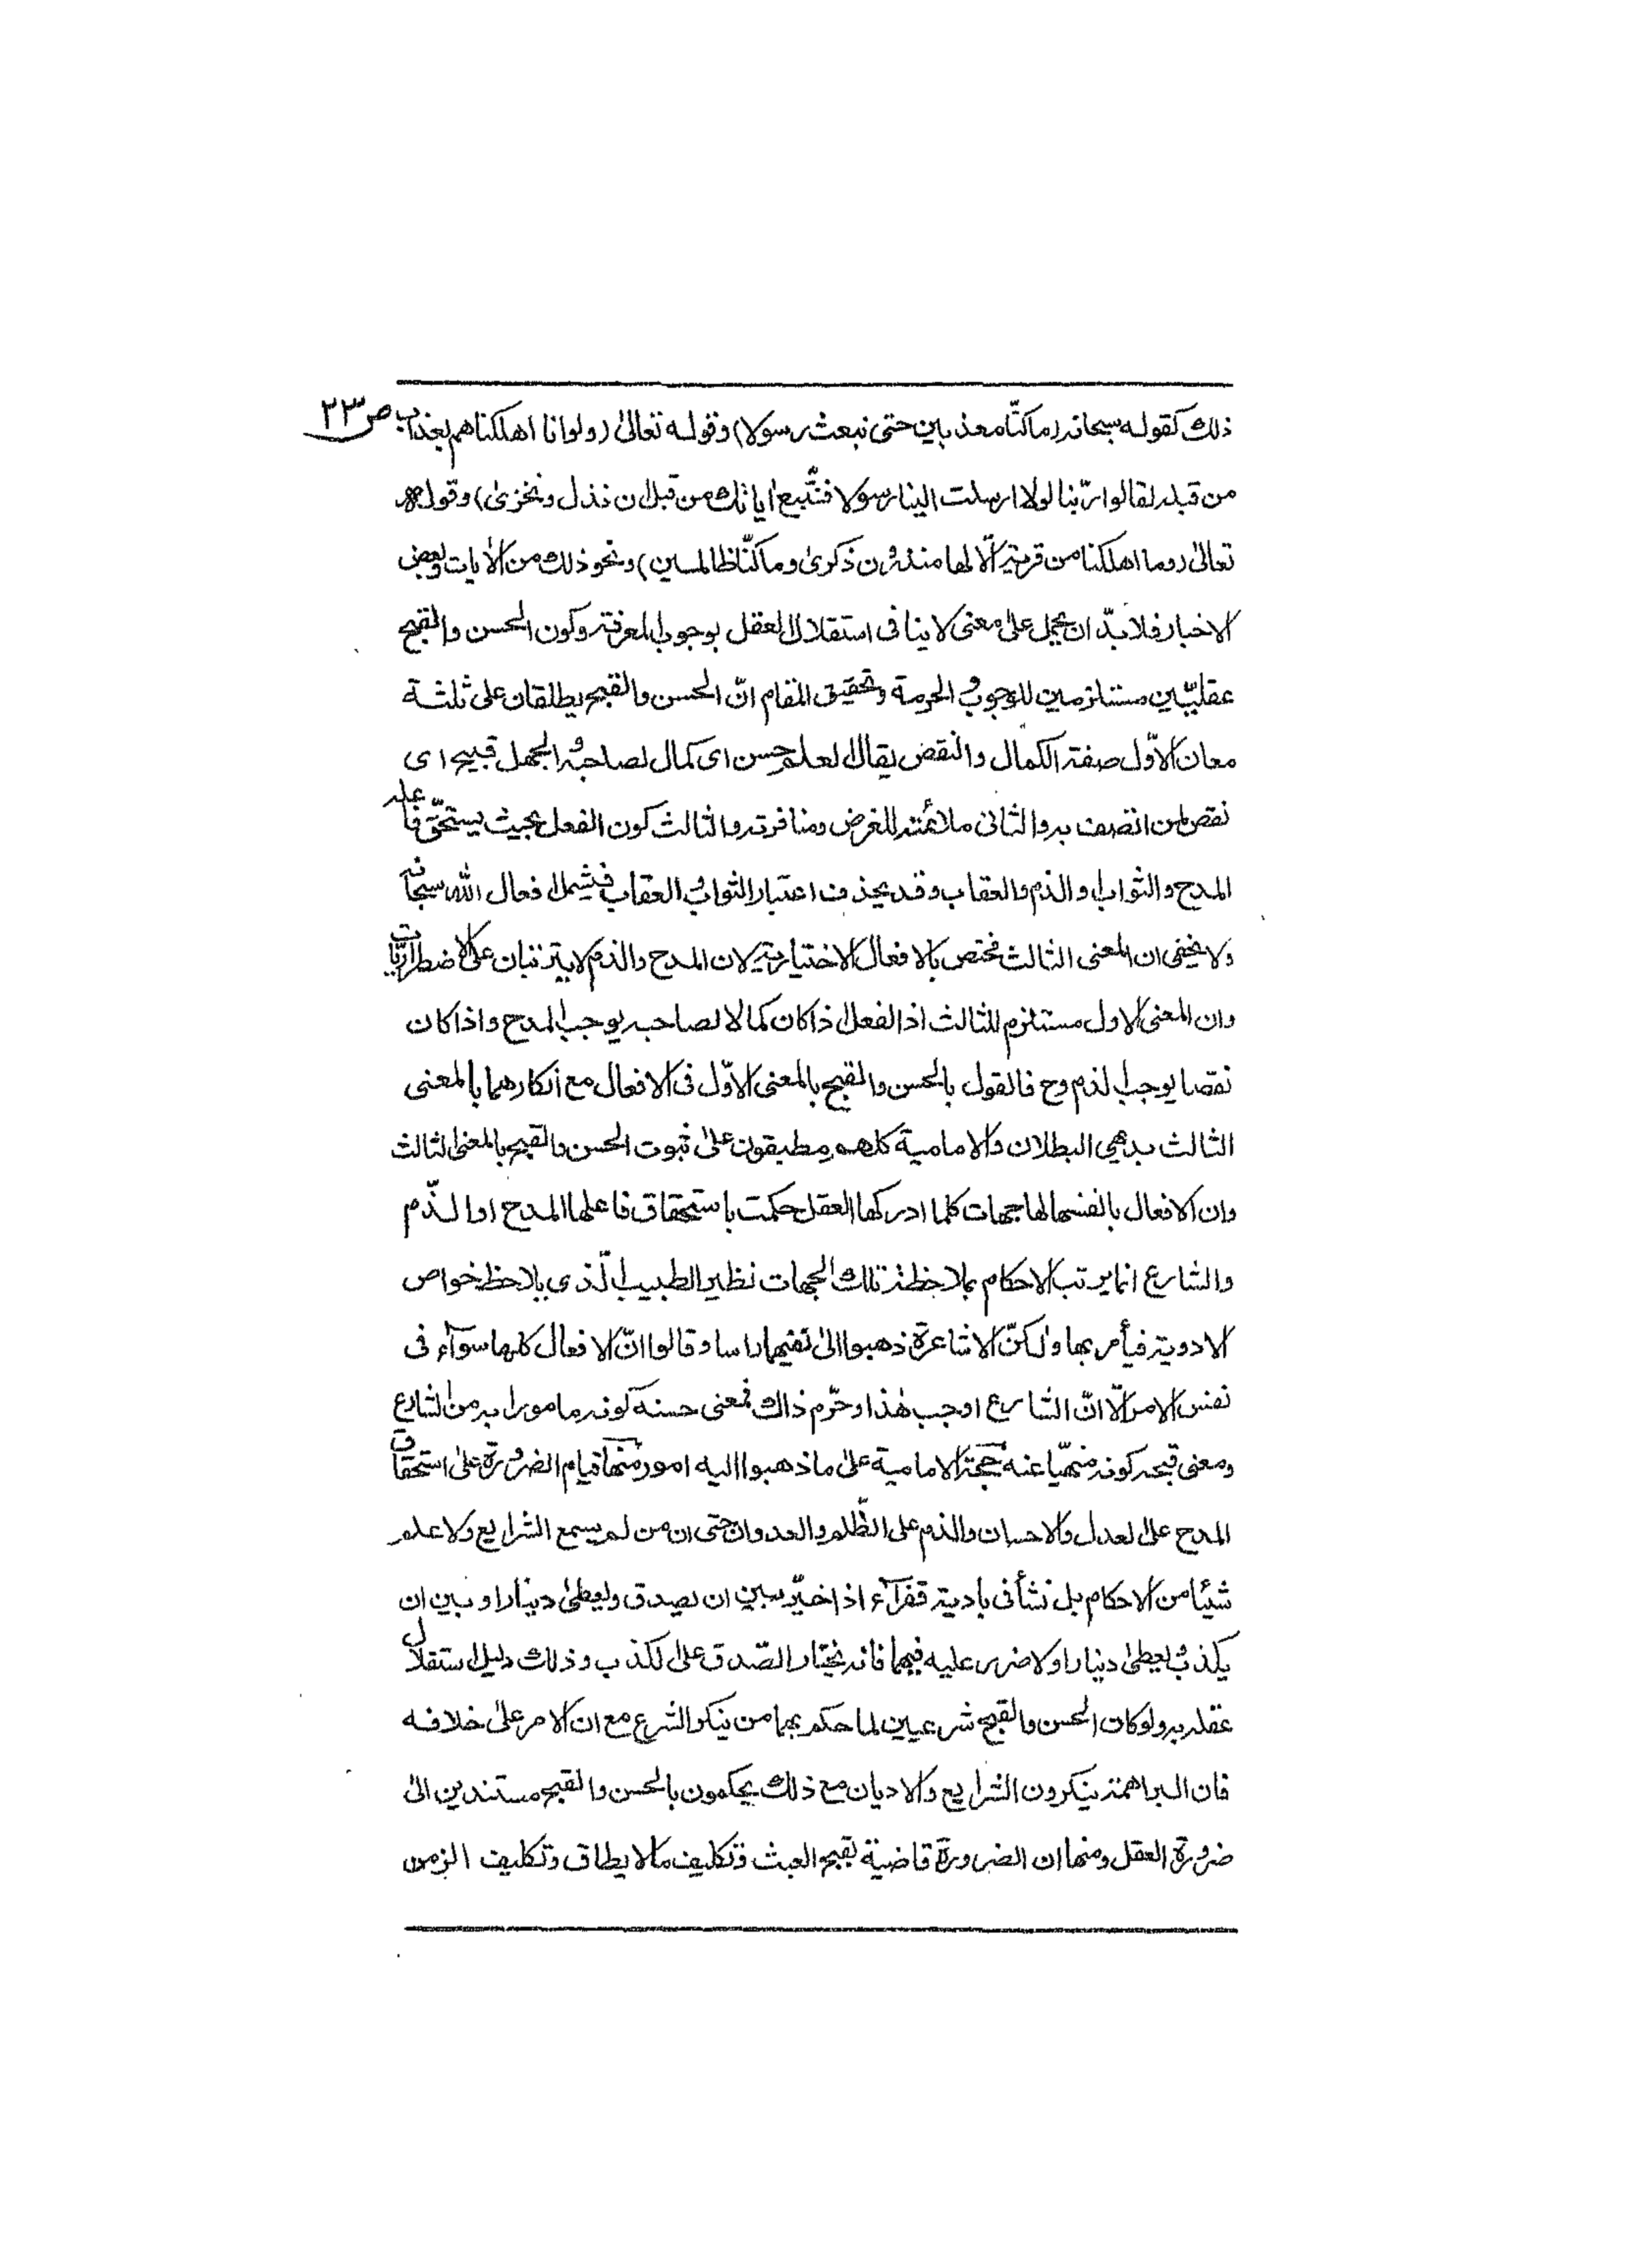 ص ٢٣
ذلك كقوله سبحانه (ماكنّا معذبين حتى نبعث رسولا) وقوله تعالىٰ (ولوانا اهلكناهم بعذاب
من قبله لقالوا ربّنا لولا ارسلت الينا رسولا فنتّبع اياتك من قبل ان نذل ونخزىٰ) وقوله
تعالىٰ (وما اهلكنا من قرية الّا لها منذرون ذكرىٰ وماكنّا ظالمين) ونحو ذلك من الاٰيات وبعض
الاخبار فلابدّ ان يحمل علىٰ معنى لاينافى استقلال العقل بوجوب المعرفة وكون الحسن والقبح
عقليّين مستلزمين للوجوب والحرمة وتحقيق المقام انّ الحسن والقبح يطلقان على ثلثة
معان الاوّل صفة الكمال والنقص يقال العلم حسن اى كمال لصاحبه والجهل قبيح اى
نقص لمن اتصف به والثانى ملائمته للغرض ومنافرته والثالث كون الفعل بحيث يستحقّ فاعله
المدح والثواب او الذم والعقاب وقد يحذف اعتبار الثواب والعقاب فيشمل افعال الله سبحانه
ولا يخفى ان المعنى الثالث مختص بالافعال الاختيارية لان المدح والذم لايترتبان على الاضطراريّات
وان المعنى الاول مستلزم للثالث اذ الفعل اذاكان كمالا لصاحبه يوجب المدح واذاكان
نقصا يوجب الذم وح فالقول بالحسن والقبح بالمعنى الاوّل فى الافعال مع انكارهما بالمعنى
الثالث بديهى البطلان والامامية كلهم مطبقون علىٰ ثبوت الحسن والقبح بالمعنى الثالث
وان الافعال بانفسها لها جهات كلما ادركها العقل حكمت باستحقاق فاعلها المدح او الذّم
والشارع انما يرتب الاحكام بملاحظة تلك الجهات نظير الطبيب الّذى يلاحظ خواص
الادوية فيأمر بها ولٰكنّ الاشاعرة ذهبوا الىٰ نفيهما راسا وقالوا انّ الافعال كلها سوآء فى
نفس الامر الّا انّ الشارع اوجب هٰذا وحرّم ذاك فمعنى حسنه كونه مامورا به من الشارع
ومعنى قبحه كونه منهيّا عنه حجة الامامية علىٰ ما ذهبوا اليه امور منها قيام الضرورة علىٰ استحقاق
المدح على العدل والاحسان والذم على الظّلم والعدوان حتى ان من لم يسمع الشرايع ولا علم
شيئا من الاحكام بل نشأ فى بادية قفرآء اذا خيّر بين ان يصدق ويعطىٰ دينارا و بين ان
يكذب ويعطىٰ دينارا ولا ضرر عليه فيهما فانه يختار الصّدق على الكذب وذلك دليل استقلال
عقله به ولوكان الحسن والقبح شرعيين لما حكم بهما من ينكر الشرع مع ان الامر علىٰ خلافه
فان البراهمة ينكرون الشرايع والاديان مع ذلك يحكمون بالحسن والقبح مستندين الىٰ
ضرورة العقل ومنها ان الضرورة قاضية بقبح العبث وتكليف مالايطاق وتكليف الزمن